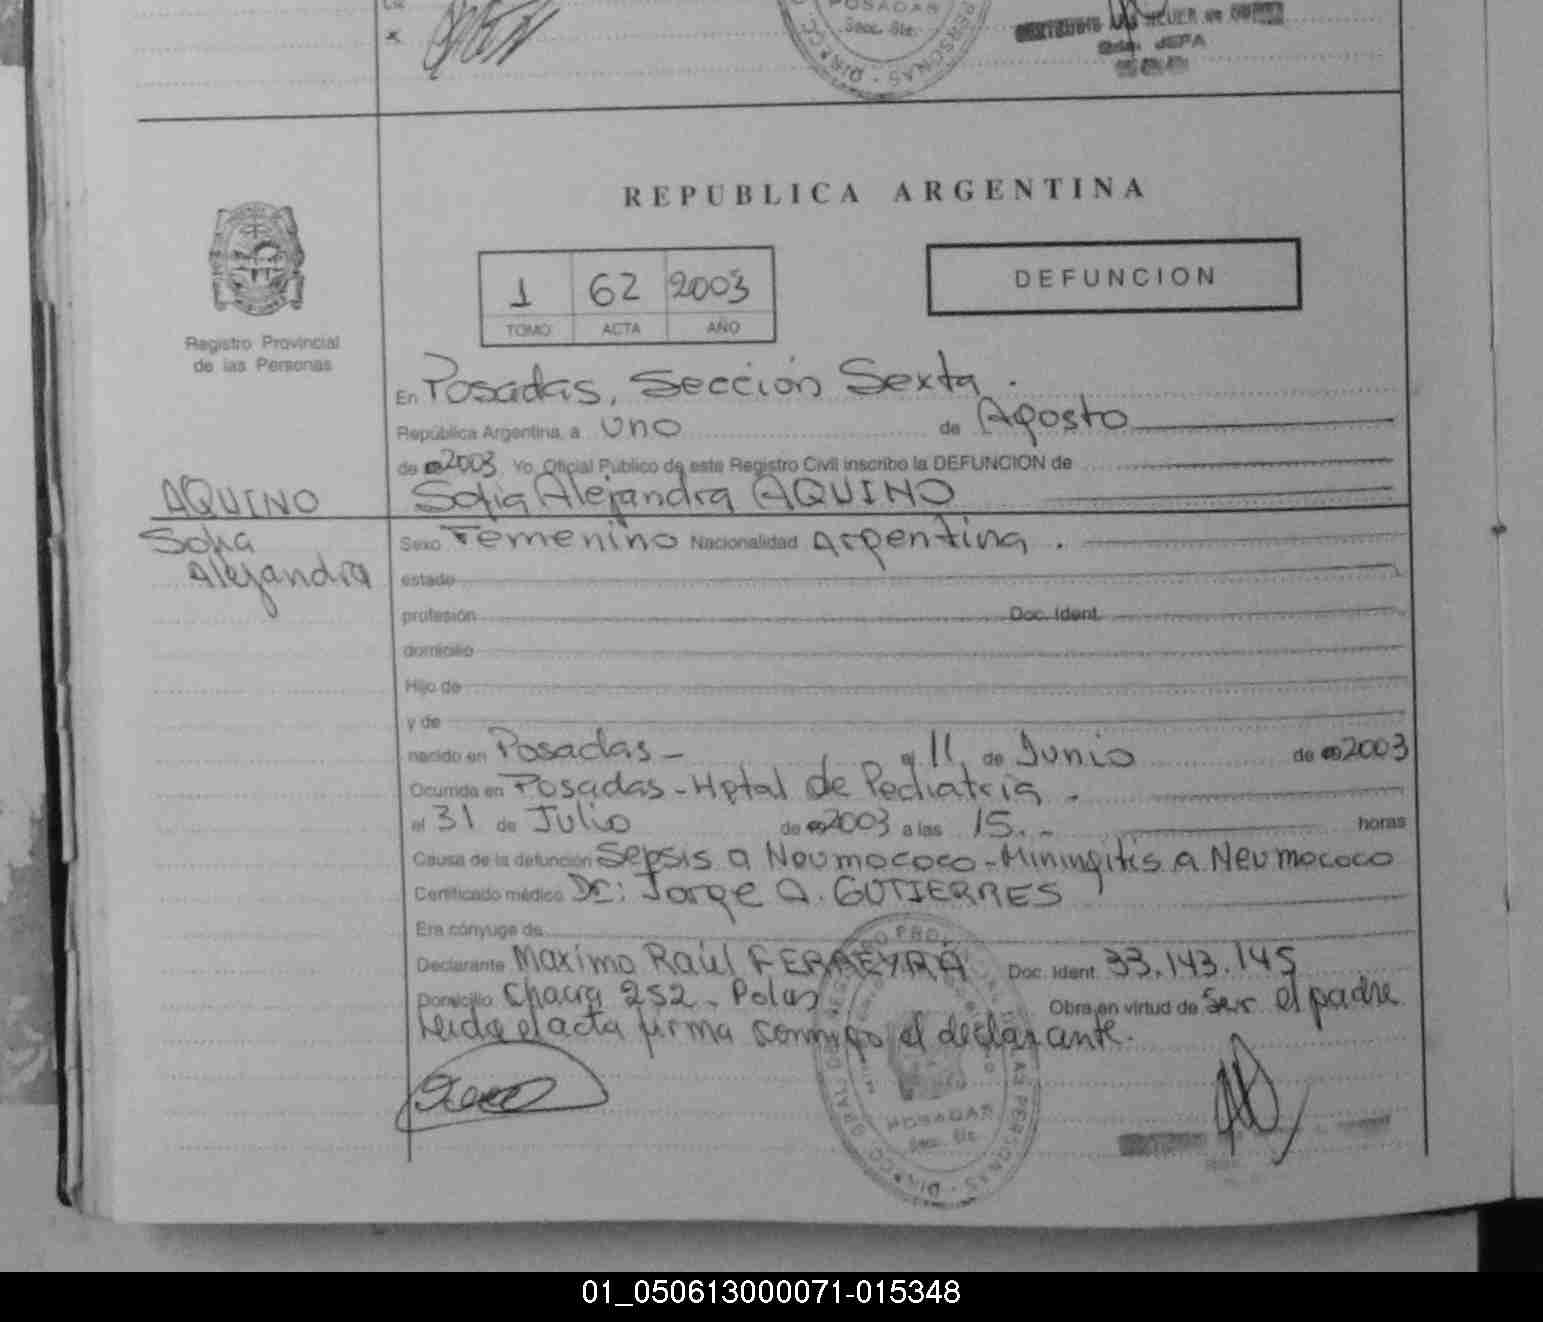 POSADAS
Secc. 6ta.
PERSONAS
Gde. JEFA
REPUBLICA ARGENTINA
1 62 2003
TOMO ACTA AÑO
DEFUNCION
Registro Provincial
de las Personas
En Posadas, Sección Sexta.
República Argentina, a uno de Agosto
de 2003 Yo, Oficial Público de este Registro Civil inscribo la DEFUNCION de
AQUINO Sofia Alejandra AQUINO
Sofia
Alejandra
Sexo Femenino Nacionalidad Argentina.
estado
profesión Doc. Ident.
domicilio
Hijo de
y de
nacido en Posadas - el 11 de Junio de 2003
Ocurrida en Posadas - Hptal de Pediatria.
el 31 de Julio de 2003 a las 15.- horas
Causa de la defunción Sepsis a Neumococo - Miningitis a Neumococo
Certificado médico Dr: Jorge A. GUTIERRES
Era cónyuge de
Declarante Maximo Raúl FERREYRA Doc. Ident. 33.143.145
Domicilio Chacra 252 - Pdas Obra en virtud de Ser el padre
Leida el acta firma conmigo el declarante.
POSADAS
Secc. 6ta.
01_050613000071-015348